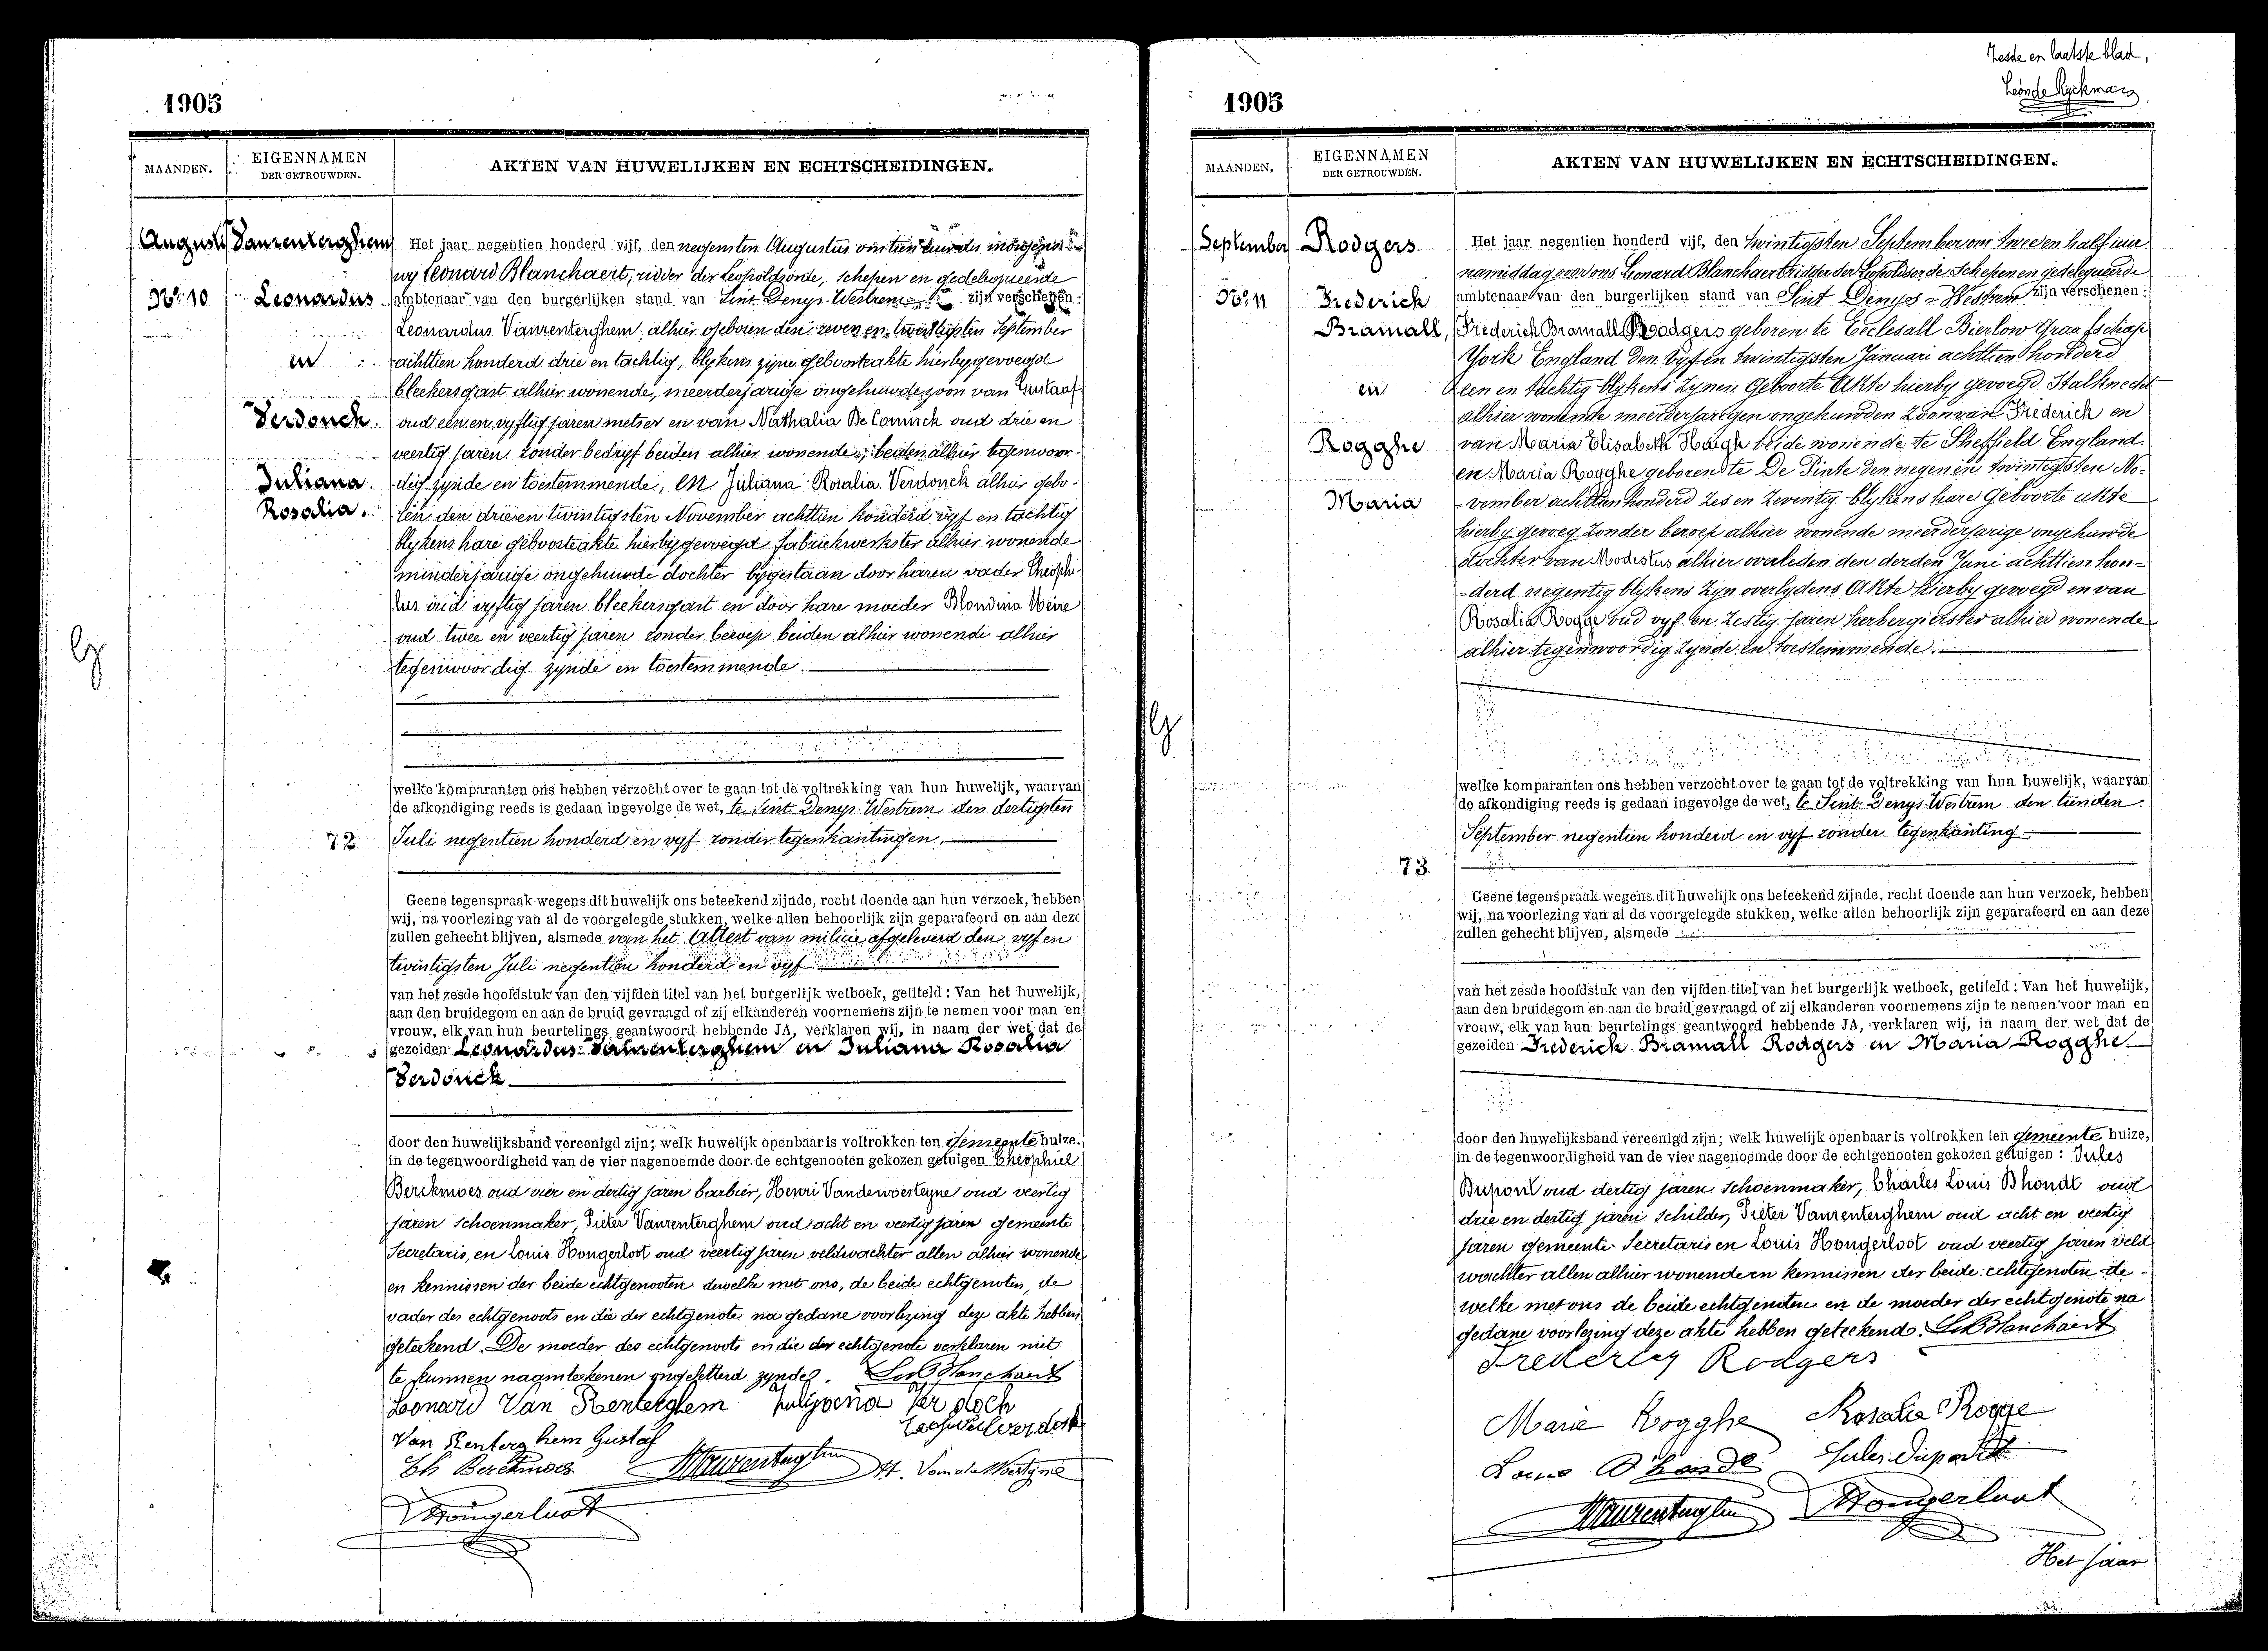 1905
MAANDEN.
EIGENNAMEN
DER GETROUWDEN.
AKTEN VAN HUWELIJKEN EN ECHTSCHEIDINGEN.
Augusti
No. 10
Vanrenterghem
Leonardus
en
Verdonck.
Juliana
Rosalia.
Het jaar negentien honderd vijf, den negensten Augustus om tien uur des morgens voor
wy Leonard Blanchaert, ridder der Leopoldsorde, schepen en gedelegueerde
ambtenaar van den burgerlijken stand van Sint Denys-Westrem zijn verschenen:
Leonardus Vanrenterghem alhier geboren den zeven en twintigsten September
achttien honderd drie en tachtig, blykens zyne geboorteakte hierbygevoegd
bleekersgast alhier wonende, meerderjarige ongehuwde zoon van Gustaaf
oud een en vyftig jaren metser en van Nathalia De Coninck oud drie en
veertig jaren zonder bedryf beiden alhier wonende, beiden alhier tegenwoor-
dig zynde en toestemmende, en Juliana Rosalia Verdonck alhier gebo-
ren den drieen twintigsten November achttien honderd vyf en tachtig
blykens hare geboorteakte hierbygevoegd fabriekwerkster alhier wonende
minderjarige ongehuwde dochter bygestaan door haren vader Theophi-
lus oud vyftig jaren bleekersgast en door hare moeder Blondina Weire
oud twee en veertig jaren zonder beroep beiden alhier wonende alhier
tegenwoordig zynde en toestemmende.
welke komparanten ons hebben verzocht over te gaan tot de voltrekking van hun huwelijk, waarvan
de afkondiging reeds is gedaan ingevolge de wet, te Sint-Denys-Westrem den dertigsten
72 Juli negentien honderd en vyf zonder tegenkantingen.
Geene tegenspraak wegens dit huwelijk ons beteekend zijnde, recht doende aan hun verzoek, hebben
wij, na voorlezing van al de voorgelegde stukken, welke allen behoorlijk zijn geparafeerd en aan deze
zullen gehecht blijven, alsmede van het Attest van milicie afgeleverd den vyf en
twintigsten Juli negentien honderd en vyf
van het zesde hoofdstuk van den vijfden titel van het burgerlijk wetboek, getiteld: Van het huwelijk,
aan den bruidegom en aan de bruid gevraagd of zij elkanderen voornemens zijn te nemen voor man en
vrouw, elk van hun beurtelings geantwoord hebbende JA, verklaren wij, in naam der wet dat de
gezeiden Leonardus Vanrenterghem en Juliana Rosalia
Verdonck
door den huwelijksband vereenigd zijn; welk huwelijk openbaar is voltrokken ten gemeente huize,
in de tegenwoordigheid van de vier nagenoemde door de echtgenooten gekozen getuigen Theophiel
Berckmoes oud vier en dertig jaren barbier, Henri Vandewoesteyne oud veertig
jaren schoenmaker, Pieter Vanrenterghem oud acht en veertig jaren gemeente
Secretaris, en Louis Hongerloot oud veertig jaren veldwachter allen alhier wonende
en kennissen der beide echtgenooten dewelke met ons, de beide echtgenoten, de
vader des echtgenoots en die der echtgenote na gedane voorlezing deze akte hebben
geteekend. De moeder des echtgenoots en die der echtgenote verklaren niet
te kunnen naamteekenen ongeletterd zynde. Le Blanchaert
Leonard Van Renterghem Julijoena Ver dock
Van Renterghem Gustaf
Th Berckmoes PVanrenterghem H. Vande Woestyne
LHongerloot
Zesde en laatste blad,
Léon de Ryckman
1905
MAANDEN.
EIGENNAMEN
DER GETROUWDEN.
AKTEN VAN HUWELIJKEN EN ECHTSCHEIDINGEN.
September
No. 11
Rodgers
Frederich
Bramall,
en
Rogghe
Maria
Het jaar negentien honderd vijf, den twintigsten September om twee en half uur
namiddag voor ons Leonard Blanchaert ridder der Leopoldsorde Schepen en gedelegueerde
ambtenaar van den burgerlijken stand van Sint Denys-Westrem zijn verschenen:
Frederich Bramall Roodgers geboren te Ecclesall Bierlow Graafschap
York England den vyf en twintigsten Januari achttien honderd
een en tachtig blykens Zynen Geboorte Akte hierby gevoegd Stalknecht
alhier wonende meerderjarigen ongehuwden Zoon van Friederich en
van Maria Elisabeth Haigh beide wonende te Sheffield England
en Maria Rogghe geboren te De Pinte den negen en twintigsten No-
-vember achttien honderd Zes en Zeventig blykens hare Geboorte akte
hierby gevoeg Zonder beroep alhier wonende meerderjarige ongehuwde
dochter van Modestus alhier overleden den derden Juni achttien hon-
-derd negentig blykens Zyn overlydens Akte hierby gevoegd en van
Rosalia Rogge oud vyf en Zestig jaren herbergierster alhier wonende
alhier tegenwoordig Zynde en toestemmende.
welke komparanten ons hebben verzocht over te gaan tot de voltrekking van hun huwelijk, waarvan
de afkondiging reeds is gedaan ingevolge de wet, te Sint-Denys-Westrem den tienden
September negentien honderd en vyf zonder tegenkanting
73.
Geene tegenspraak wegens dit huwelijk ons beteekend zijnde, recht doende aan hun verzoek, hebben
wij, na voorlezing van al de voorgelegde stukken, welke allen behoorlijk zijn geparafeerd en aan deze
zullen gehecht blijven, alsmede
van het zesde hoofdstuk van den vijfden titel van het burgerlijk wetboek, getiteld: Van het huwelijk,
aan den bruidegom en aan de bruid gevraagd of zij elkanderen voornemens zijn te nemen voor man en
vrouw, elk van hun beurtelings geantwoord hebbende JA, verklaren wij, in naam der wet dat de
gezeiden Frederich Bramall Rodgers en Maria Rogghe
door den huwelijksband vereenigd zijn; welk huwelijk openbaar is voltrokken ten gemeente huize,
in de tegenwoordigheid van de vier nagenoemde door de echtgenooten gekozen getuigen: Jules
Dupont oud dertig jaren Schoenmaker, Charles Louis Dhondt oud
drie en dertig jaren Schilder, Pieter Vanrenterghem oud acht en veertig
jaren gemeente-Secretaris en Louis Hongerloot oud veertig jaren veld
wachter allen alhier wonende en kennissen der beide echtgenoten de-
welke met ons de beide echtgenoten en de moeder der echtgenote na
gedane voorlezing deze akte hebben geteekend. Le Blanchaert
Frederick Rodgers
Marie Rogghe Rosalie Rogge
Louis D'hondt Jules Dupont
PVanrenterghem LHongerloot
Het jaar